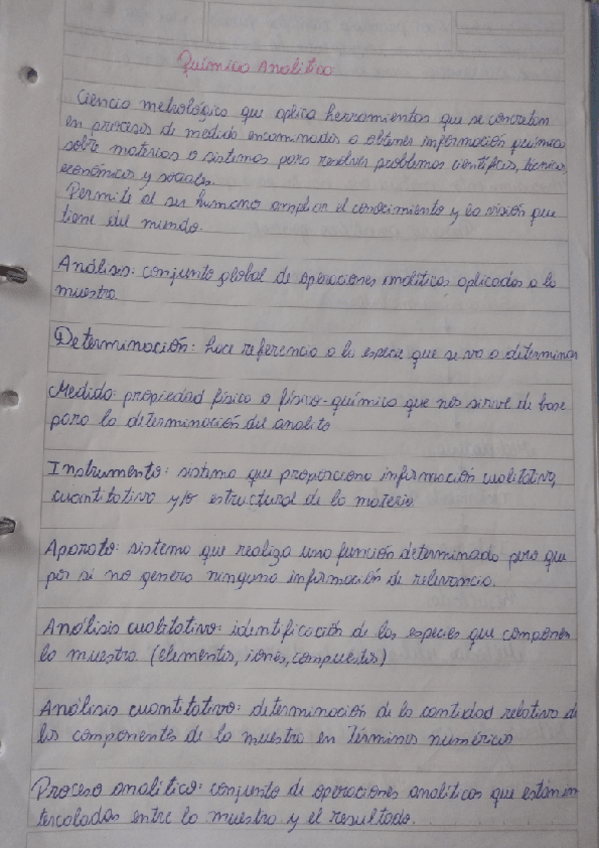 Química Analítica
Ciencia metrológica que aplica herramientas que se concretan
en procesos de medida encaminados a obtener información química
sobre materias o sistemas para resolver problemas científicos, técnicos,
económicos y sociales.
Permite al ser humano ampliar el conocimiento y la visión que
tiene del mundo.
Análisis: conjunto global de operaciones analíticas aplicadas a la
muestra.
Determinación: hace referencia a la especie que se va a determinar
Medida: propiedad física o físico-química que nos sirve de base
para la determinación del analito
Instrumento: sistema que proporciona información cualitativa,
cuantitativa y/o estructural de la materia
Aparato: sistema que realiza una función determinada pero que
por si no genera ninguna información de relevancia.
Análisis cualitativo: identificación de las especies que componen
la muestra (elementos, iones, compuestos)
Análisis cuantitativo: determinación de la cantidad relativa de
los componentes de la muestra en términos numéricos
Proceso analítico: conjunto de operaciones analíticas que están in
tercaladas entre la muestra y el resultado.